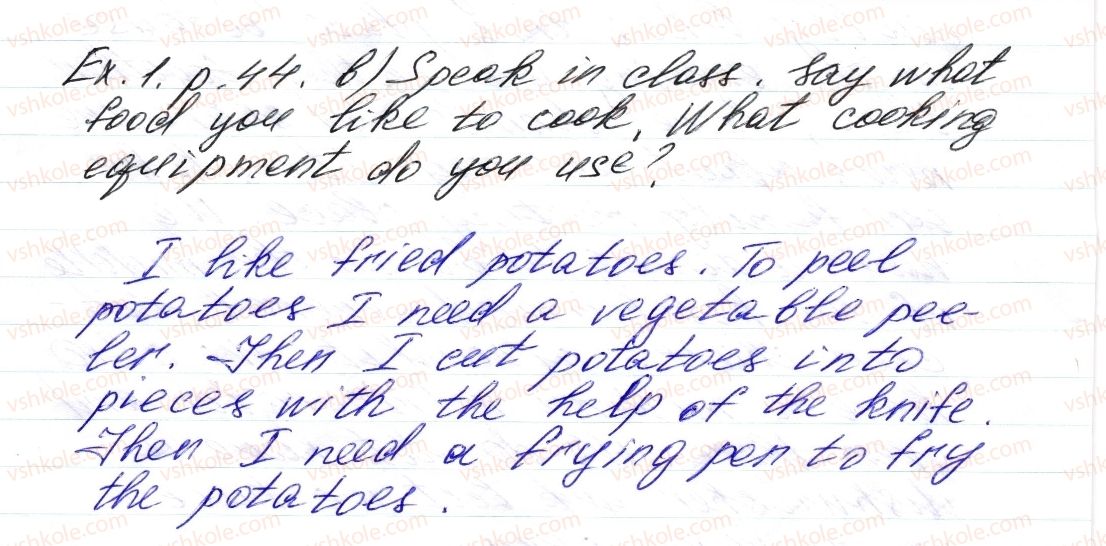 Ex. 1. p. 44. b) Speak in class. Say what
food you like to cook. What cooking
equipment do you use?
I like fried potatoes. To peel
potatoes I need a vegetable pee-
ler. Then I cut potatoes into
pieces with the help of the knife.
Then I need a frying pan to fry
the potatoes.